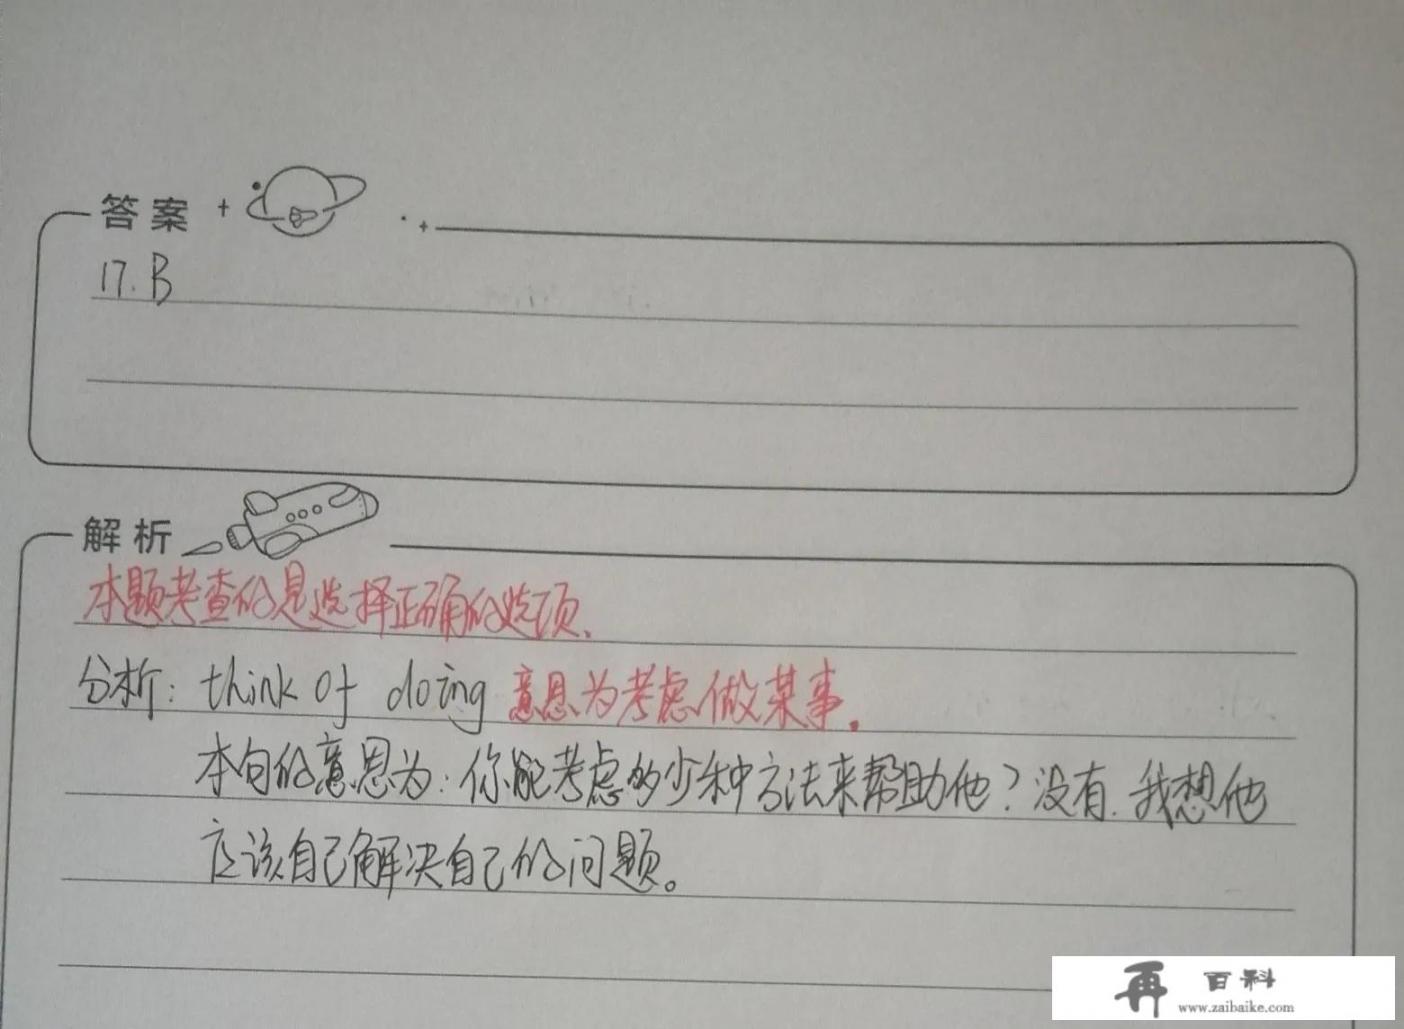 答案
17. B
解析
本题考查的是选择正确的选项.
分析: think of doing 意思为考虑做某事.
本句的意思为: 你能考虑多少种方法来帮助他? 没有. 我想他
应该自己解决自己的问题。
再 百科
www.zaibaike.com